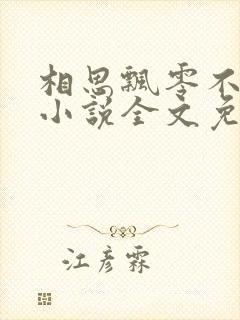 相思飘零不
小说全文免
江彦霖